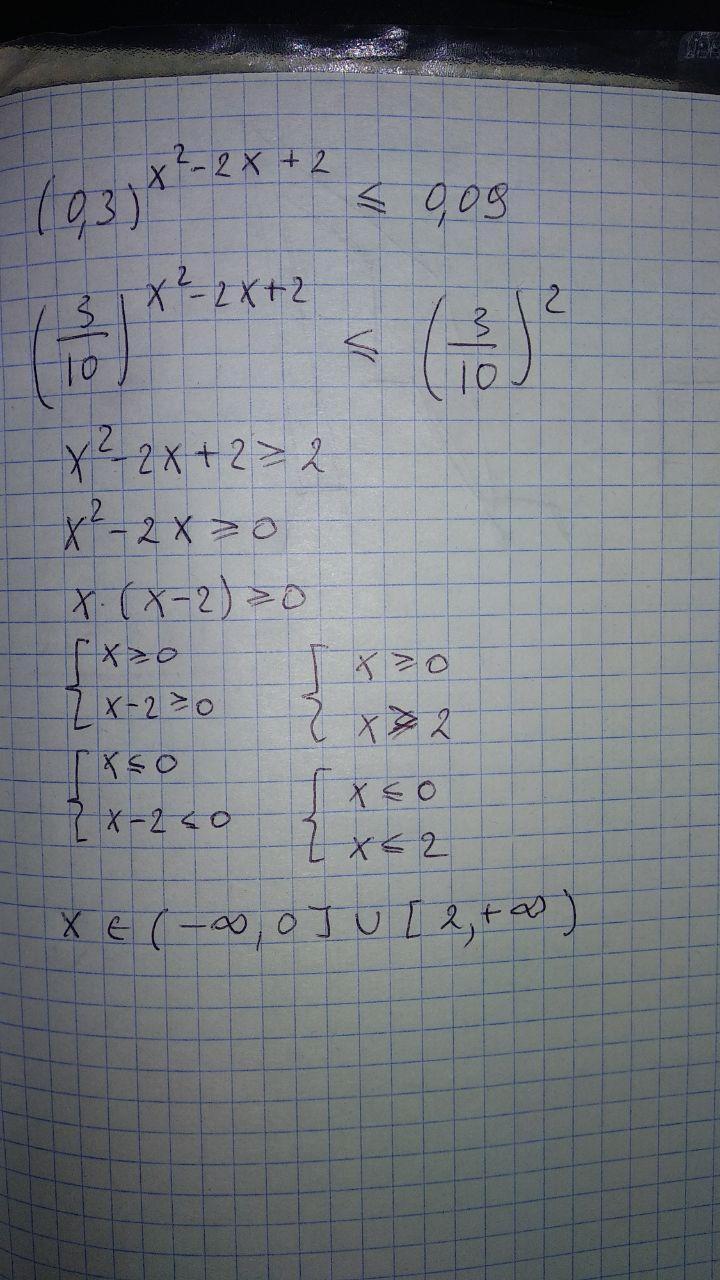 (0,3)^{x^2-2x+2} ≤ 0,09
(3/10)^{x^2-2x+2} ≤ (3/10)^2
x^2-2x+2 ≥ 2
x^2-2x ≥ 0
x·(x-2) ≥ 0
{ x ≥ 0 { x ≥ 0
x-2 ≥ 0 x ≥ 2
{ x ≤ 0 { x ≤ 0
x-2 ≤ 0 x ≤ 2
x ∈ (-∞, 0] ∪ [2, +∞)